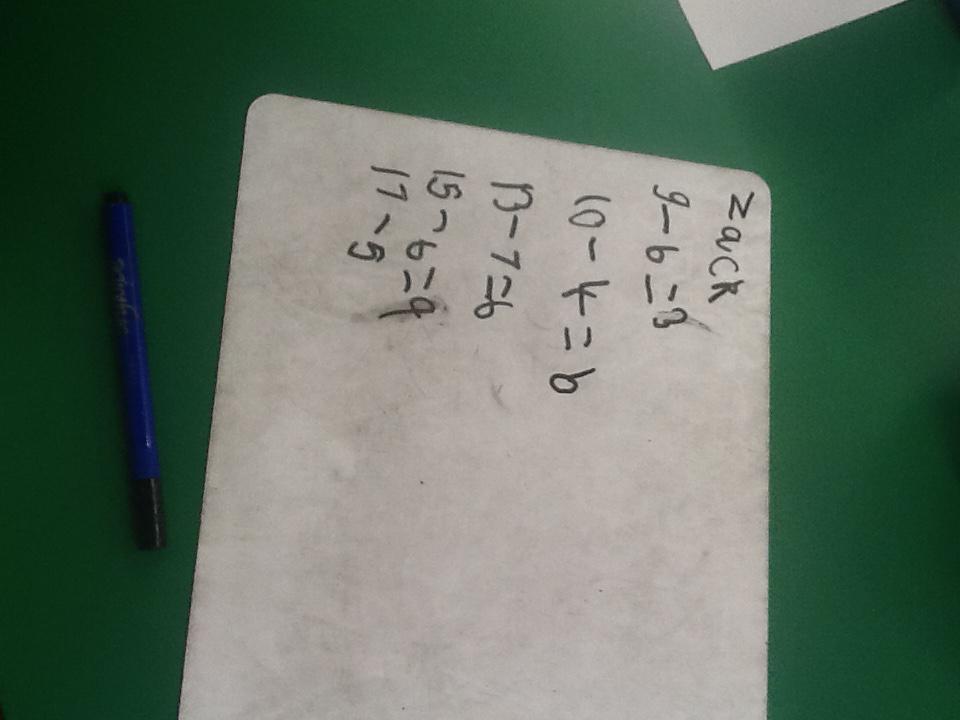 zack
9-6=3
10-4=6
13-7=6
15-6=9
17-5